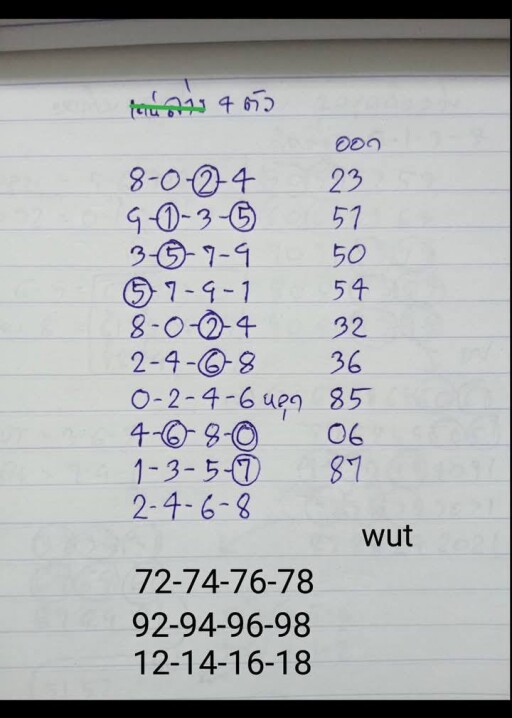 เน้นล่าง 4 ตัว
ออก
8-0-2-4 23
9-1-3-5 51
3-5-7-9 50
5-7-9-1 54
8-0-2-4 32
2-4-6-8 36
0-2-4-6 หลุด 85
4-6-8-0 06
1-3-5-7 87
2-4-6-8
wut
72-74-76-78
92-94-96-98
12-14-16-18